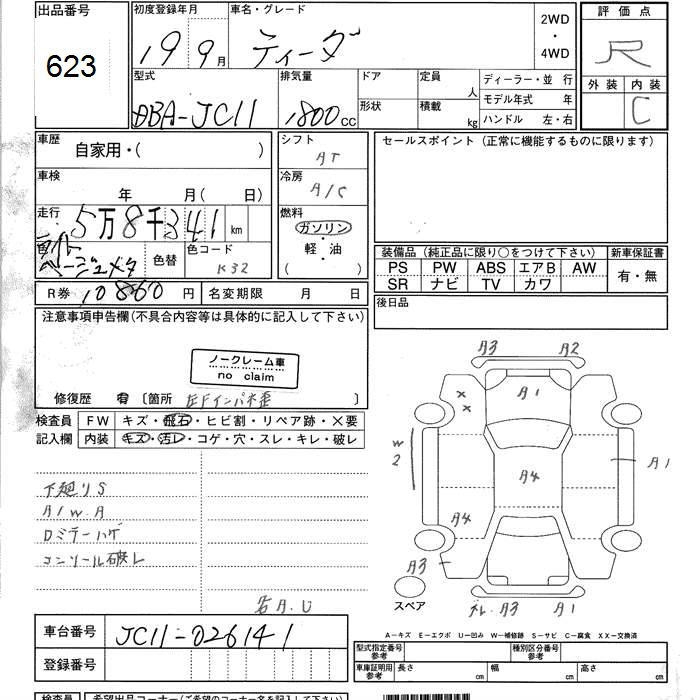 出品番号
623
初度登録年月
19 9月
車名・グレード
ティーダ
2WD
・
4WD
評価点
R
外装 内装
C
型式
DBA-JC11
排気量
1800cc
ドア
形状
定員
人
積載
kg
ディーラー・並 行
モデル年式 年
ハンドル 左・右
車歴
自家用・( )
車検
年 月( 日)
走行
5万8千341km
ベージュメタ
色替
色コード
K32
R券 10860円
名変期限 月 日
シフト
AT
冷房
A/C
燃料
ガソリン
・
軽・油
( )
セールスポイント(正常に機能するものに限ります)
装備品(純正品に限り○をつけて下さい)
PS PW ABS エアB AW
SR ナビ TV カワ
新車保証書
有・無
後日品
注意事項申告欄(不具合内容等は具体的に記入して下さい)
ノークレーム車
no claim
修復歴 有 〔箇所 左Fインパネ歪 〕
検査員
記入欄
FW キズ・飛石・ヒビ割・リペア跡・×要
内装 キズ・汚レ・コゲ・穴・スレ・キレ・破レ
下廻りS
A/W.A
ロミラーハゲ
コンソール破レ
若A.U
A3 A2
A1
× ×
W2
A1
A4
A4
A3
スペア
A3 A1
A－キズ E－エクボ U－凹み W－補修跡 S－サビ C－腐食 XX－交換済
車台番号
JC11-026141
登録番号
型式指定番号
参考
種別区分番号
参考
車庫証明用
参考
長さ cm
幅 cm
高さ cm
検査員
希望出品コーナー(ご希望のコーナー名を記入して下さい)